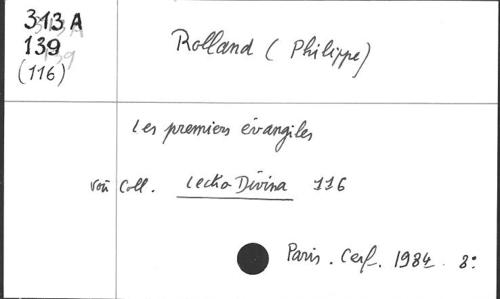 313 A
139
(116)
Rolland ( Philippe)
les premiers évangiles
voir Coll. Lectio Divina 116
Paris. Cerf. 1984. 8°